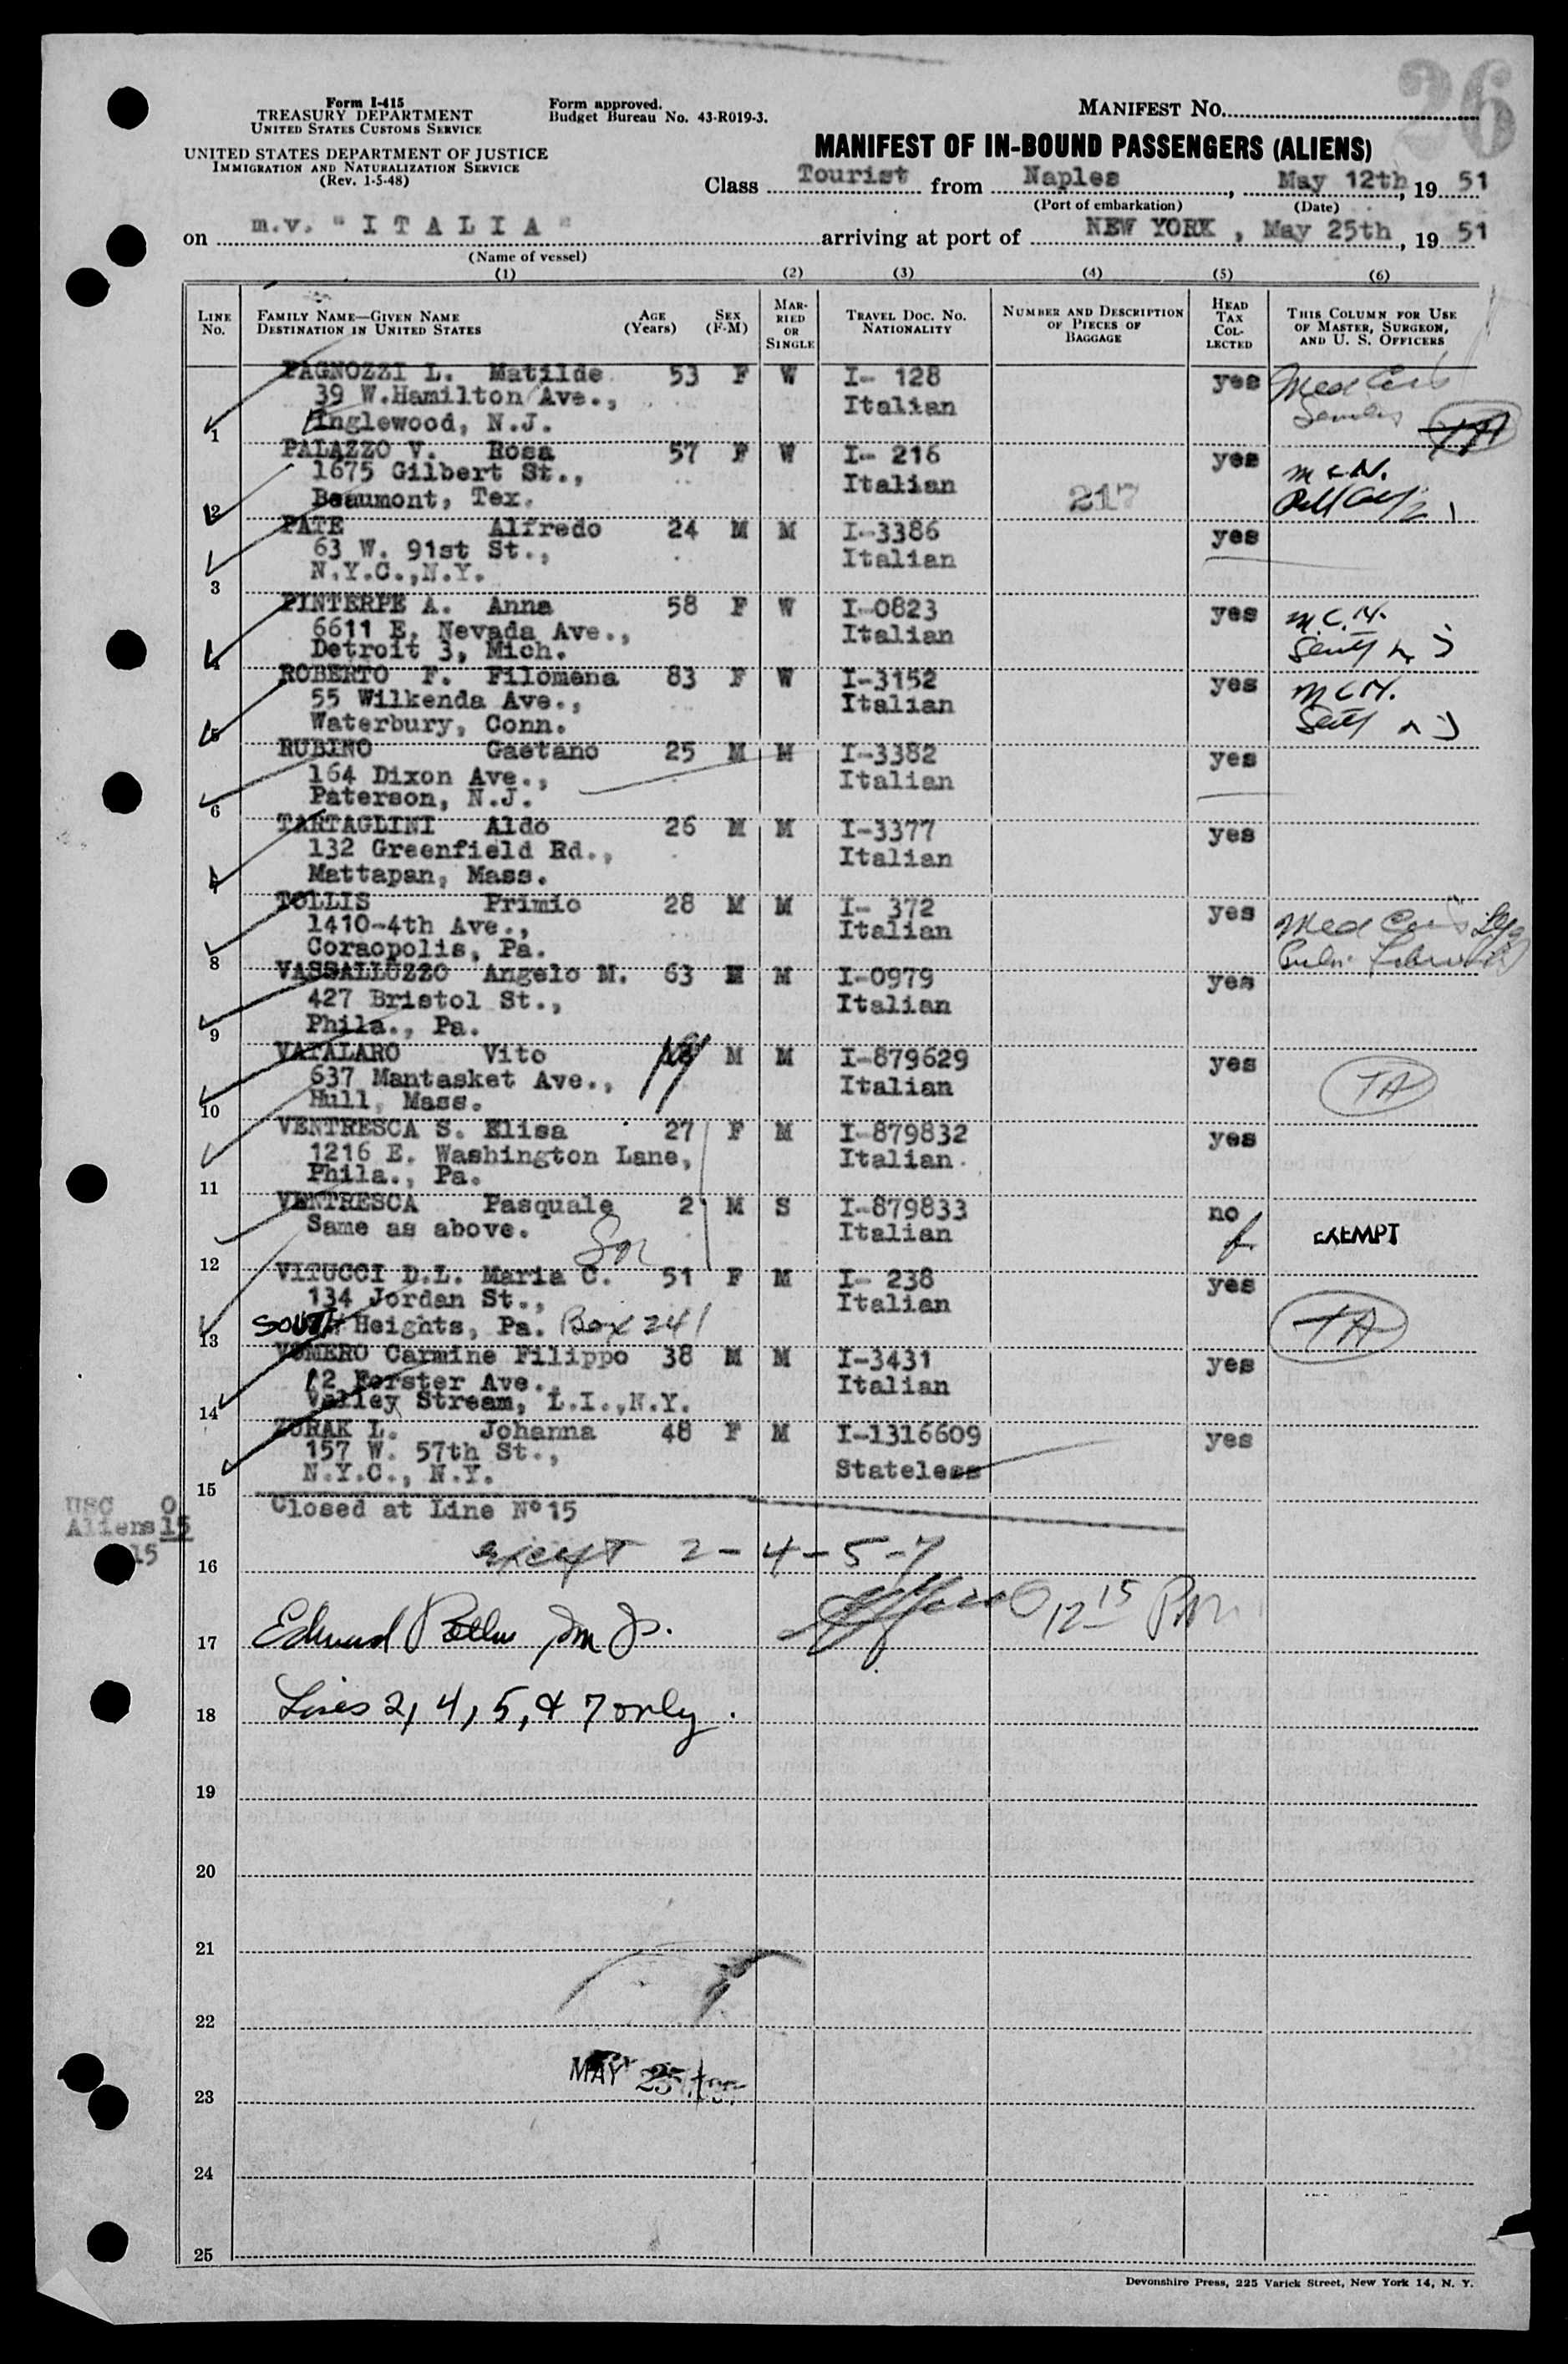 26
Form I-415
TREASURY DEPARTMENT
UNITED STATES CUSTOMS SERVICE
UNITED STATES DEPARTMENT OF JUSTICE
IMMIGRATION AND NATURALIZATION SERVICE
(Rev. 1-5-48)
Form approved.
Budget Bureau No. 43-R019-3.
MANIFEST NO.
MANIFEST OF IN-BOUND PASSENGERS (ALIENS)
Class Tourist from Naples, May 12th, 19 51
(Port of embarkation) (Date)
on m.v. "I T A L I A" arriving at port of NEW YORK, May 25th, 19 51
(Name of vessel)
(1) (2) (3) (4) (5) (6)
LINE No. FAMILY NAME—GIVEN NAME DESTINATION IN UNITED STATES AGE (Years) SEX (F-M) MARRIED OR SINGLE TRAVEL DOC. NO. NATIONALITY NUMBER AND DESCRIPTION OF PIECES OF BAGGAGE HEAD TAX COLLECTED THIS COLUMN FOR USE OF MASTER, SURGEON, AND U. S. OFFICERS
PAGNOZZI L. Matilde 53 F W I- 128 yes Med Cert
39 W.Hamilton Ave., Italian
1 Inglewood, N.J. TA
PALAZZO V. Rosa 57 F W I- 216 yes
1675 Gilbert St., Italian
2 Beaumont, Tex. 217
PATE Alfredo 24 M M I-3386 yes
63 W. 91st St., Italian
3 N.Y.C.,N.Y.
PINTERPE A. Anna 58 F W I-0823 yes M.C.H.
6611 E. Nevada Ave., Italian
4 Detroit 3, Mich.
ROBERTO F. Filomena 83 F W I-3152 yes
55 Wilkenda Ave., Italian
5 Waterbury, Conn.
RUBINO Gaetano 25 M M I-3382 yes
164 Dixon Ave., Italian
6 Paterson, N.J.
TARTAGLINI Aldo 26 M M I-3377 yes
132 Greenfield Rd., Italian
7 Mattapan, Mass.
TOLLIS Primio 28 M M I- 372 yes Med Cert
1410-4th Ave., Italian
8 Coraopolis, Pa.
VASSALLUZZO Angelo M. 63 M M I-0979 yes
427 Bristol St., Italian
9 Phila., Pa.
VATALARO Vito M M I-879629 yes
637 Mantasket Ave., Italian TA
10 Hull, Mass.
VENTRESCA S. Elisa 27 F M I-879832 yes
1216 E. Washington Lane, Italian.
11 Phila., Pa.
VENTRESCA Pasquale 2 M S I-879833 no
Same as above. Son Italian EXEMPT
12
VITUCCI D.L. Maria C. 51 F M I- 238 yes
134 Jordan St., Italian
13 SOUTH Heights, Pa. Box 241 TA
VOMERO Carmine Filippo 38 M M I-3431 yes
12 Forster Ave. Italian
14 Valley Stream, L.I.,N.Y.
ZORAK L. Johanna 48 F M I-1316609 yes
157 W. 57th St., Stateless
15 N.Y.C., N.Y.
Closed at Line Nº15
USC 0
Aliens 15
15
16 except 2-4-5-7
17 Edward 12 15 PM
18 Lines 2, 4, 5, & 7 only.
19
20
21
22
MAY 25
23
24
25
Devonshire Press, 225 Varick Street, New York 14, N. Y.